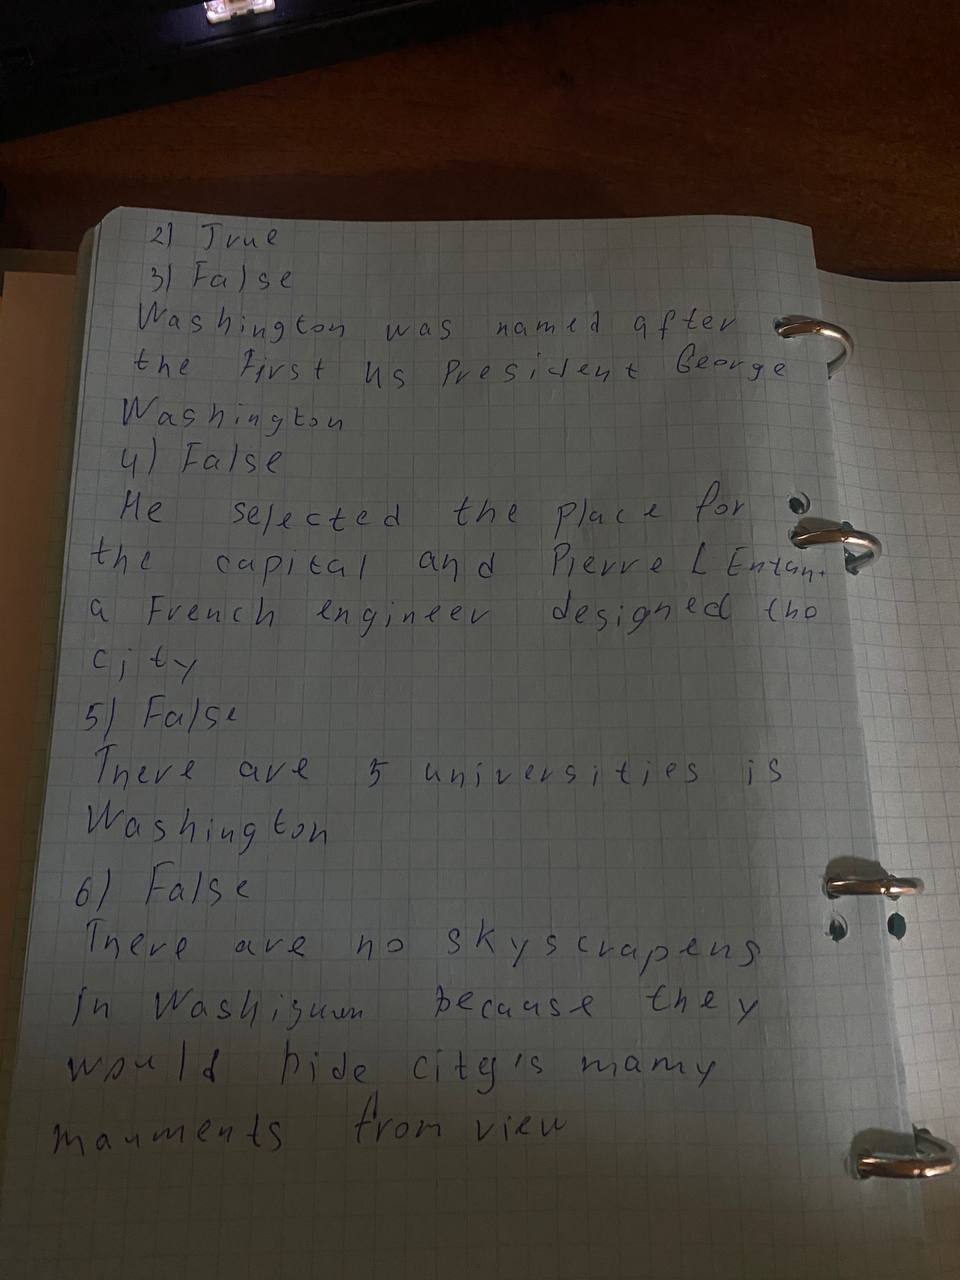 2) True
3) False
Washington was named after
the First US President George
Washington
4) False
He selected the place for
the capital and Pierre L
a French engineer designed the
city
5) False
There are 5 universities is
Washington
6) False
There are no skyscrapens
in because they
would hide city's mamy
manments from view